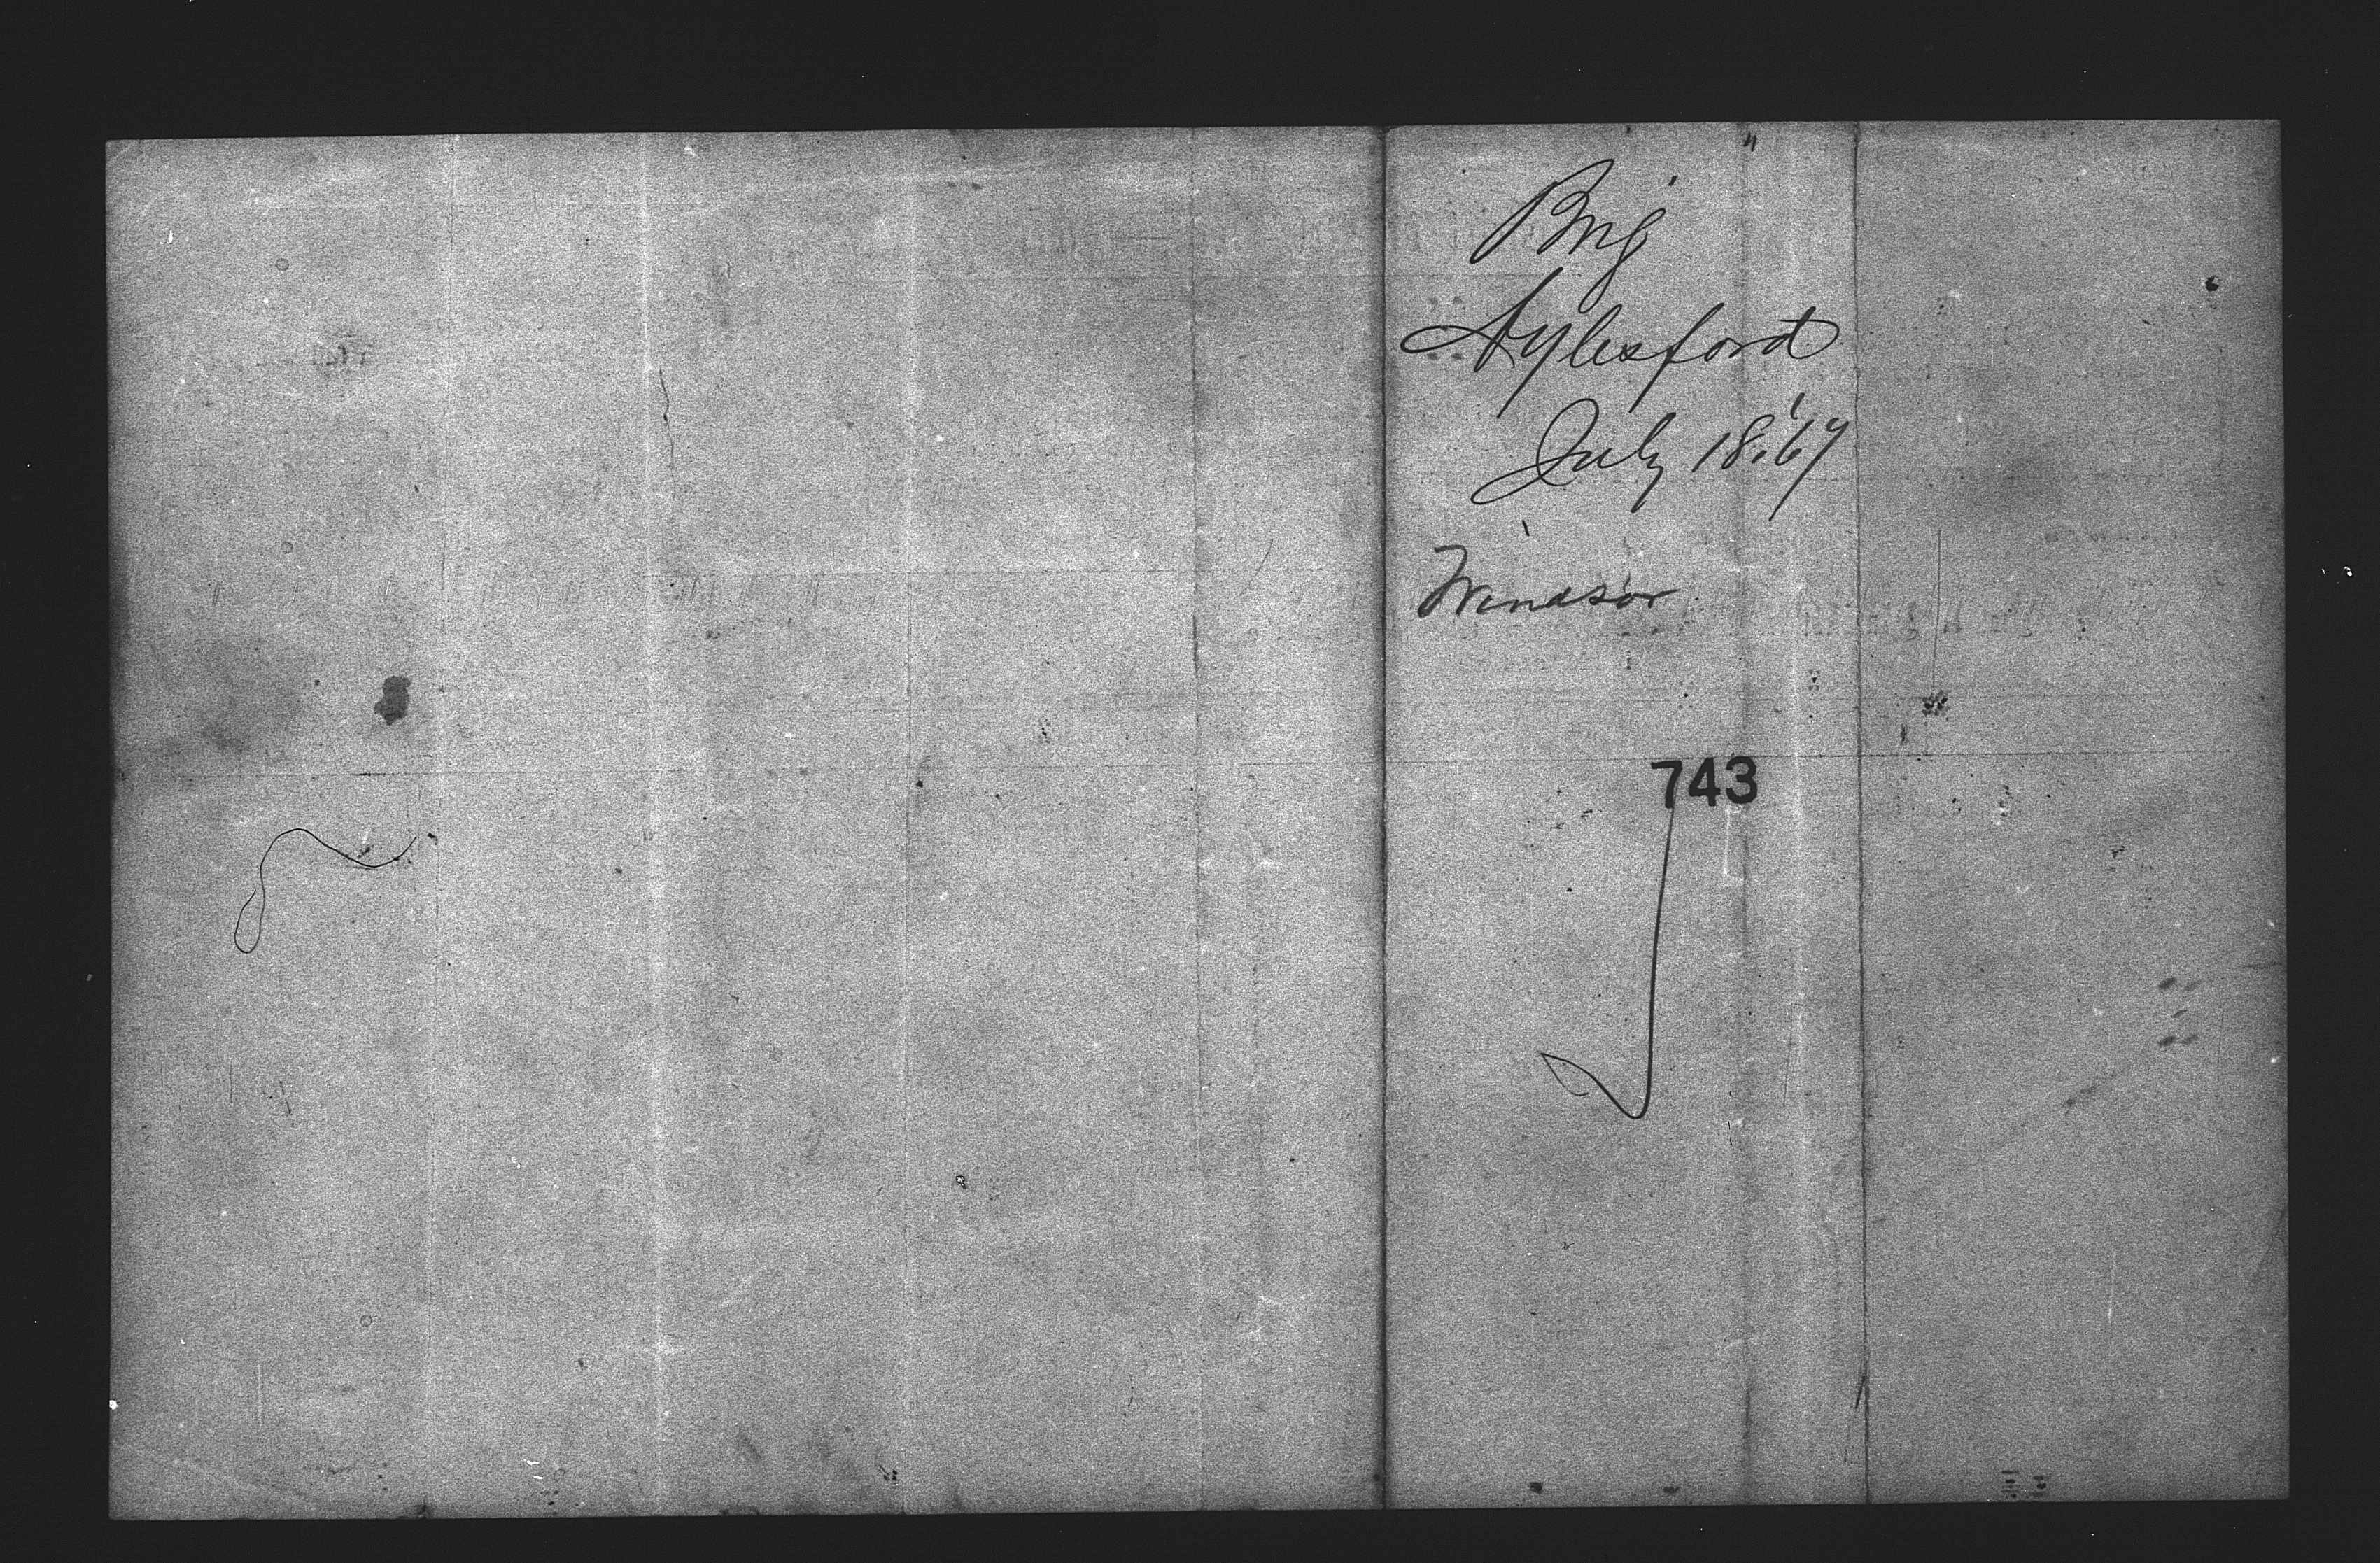 Brig
Aylesford
July 18. '67
Windsor
743